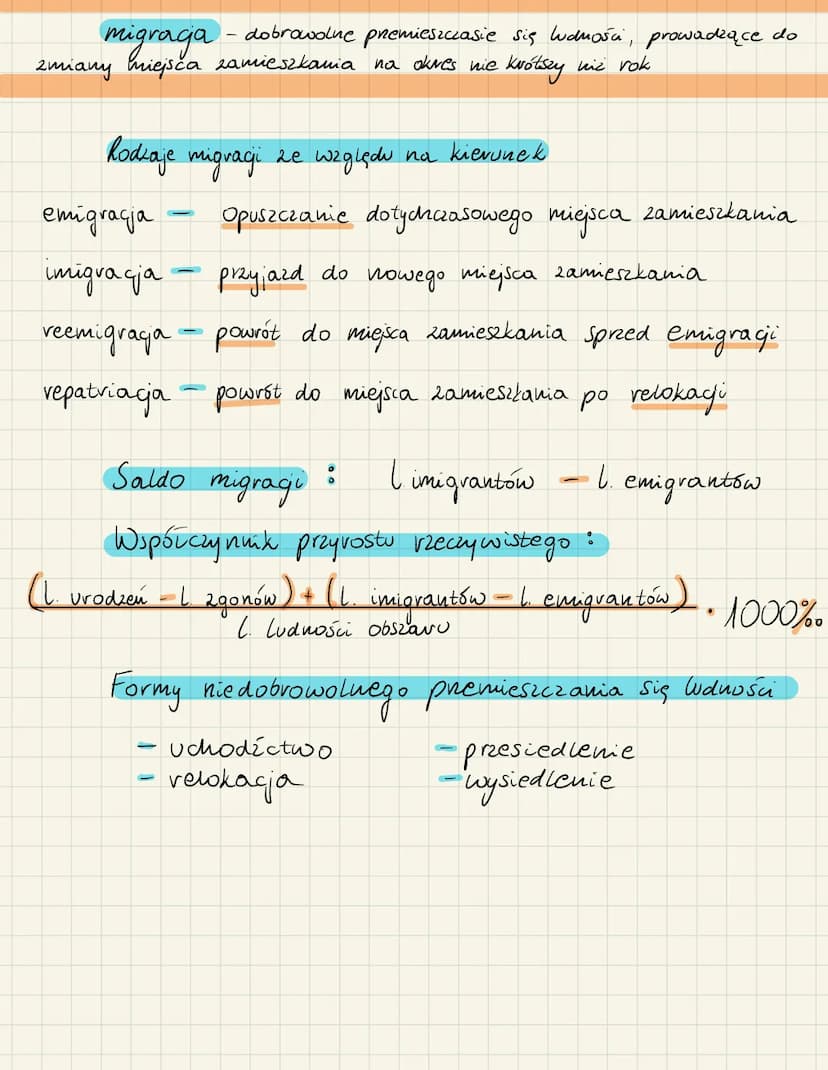 migracja - dobrowolne przemieszczasie się ludności, prowadzące do
zmiany miejsca zamieszkania na okres nie krótszy niż rok
Rodzaje migracji ze względu na kierunek
emigracja - opuszczanie dotychczasowego miejsca zamieszkania
imigracja - przyjazd do nowego miejsca zamieszkania
reemigracja - powrót do miejsca zamieszkania sprzed emigracji
repatriacja - powrót do miejsca zamieszkania po relokacji
Saldo migracji : l imigrantów - l. emigrantów
Współczynnik przyrostu rzeczywistego :
(l. urodzeń - l. zgonów) + (l. imigrantów - l. emigrantów) · 1000‰
l. ludności obszaru
Formy niedobrowolnego przemieszczania się ludności
- uchodźctwo - przesiedlenie
- relokacja - wysiedlenie